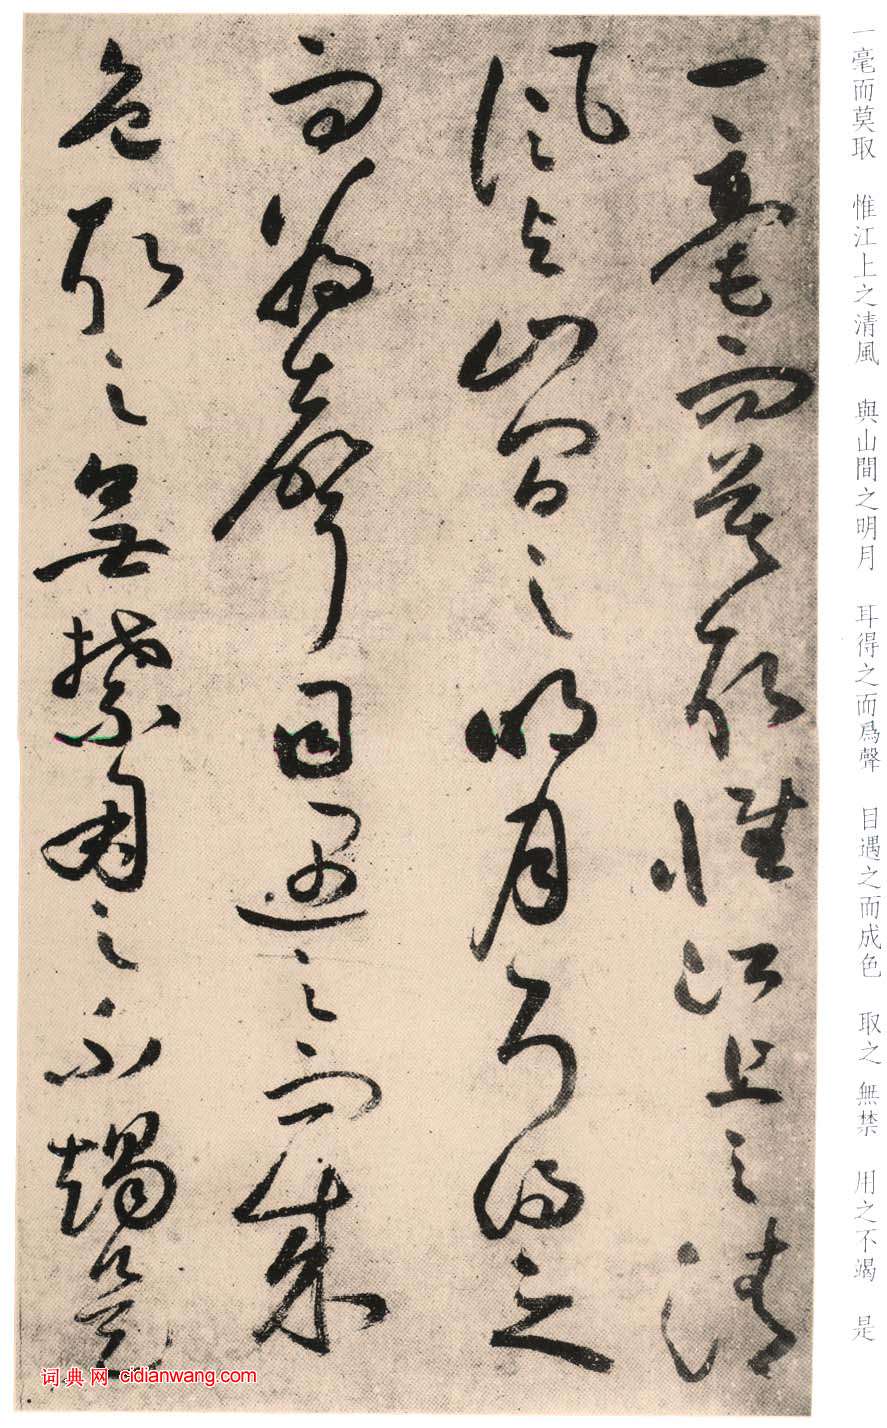 一毫而莫取 惟江上之清風 與山間之明月 耳得之而爲聲 目遇之而成色 取之 無禁 用之不竭 是
一毫而莫取惟江上之清
風與山間之明月耳得之
而為聲目遇之而成
色取之無禁用之不竭是
词典网 cidianwang.com